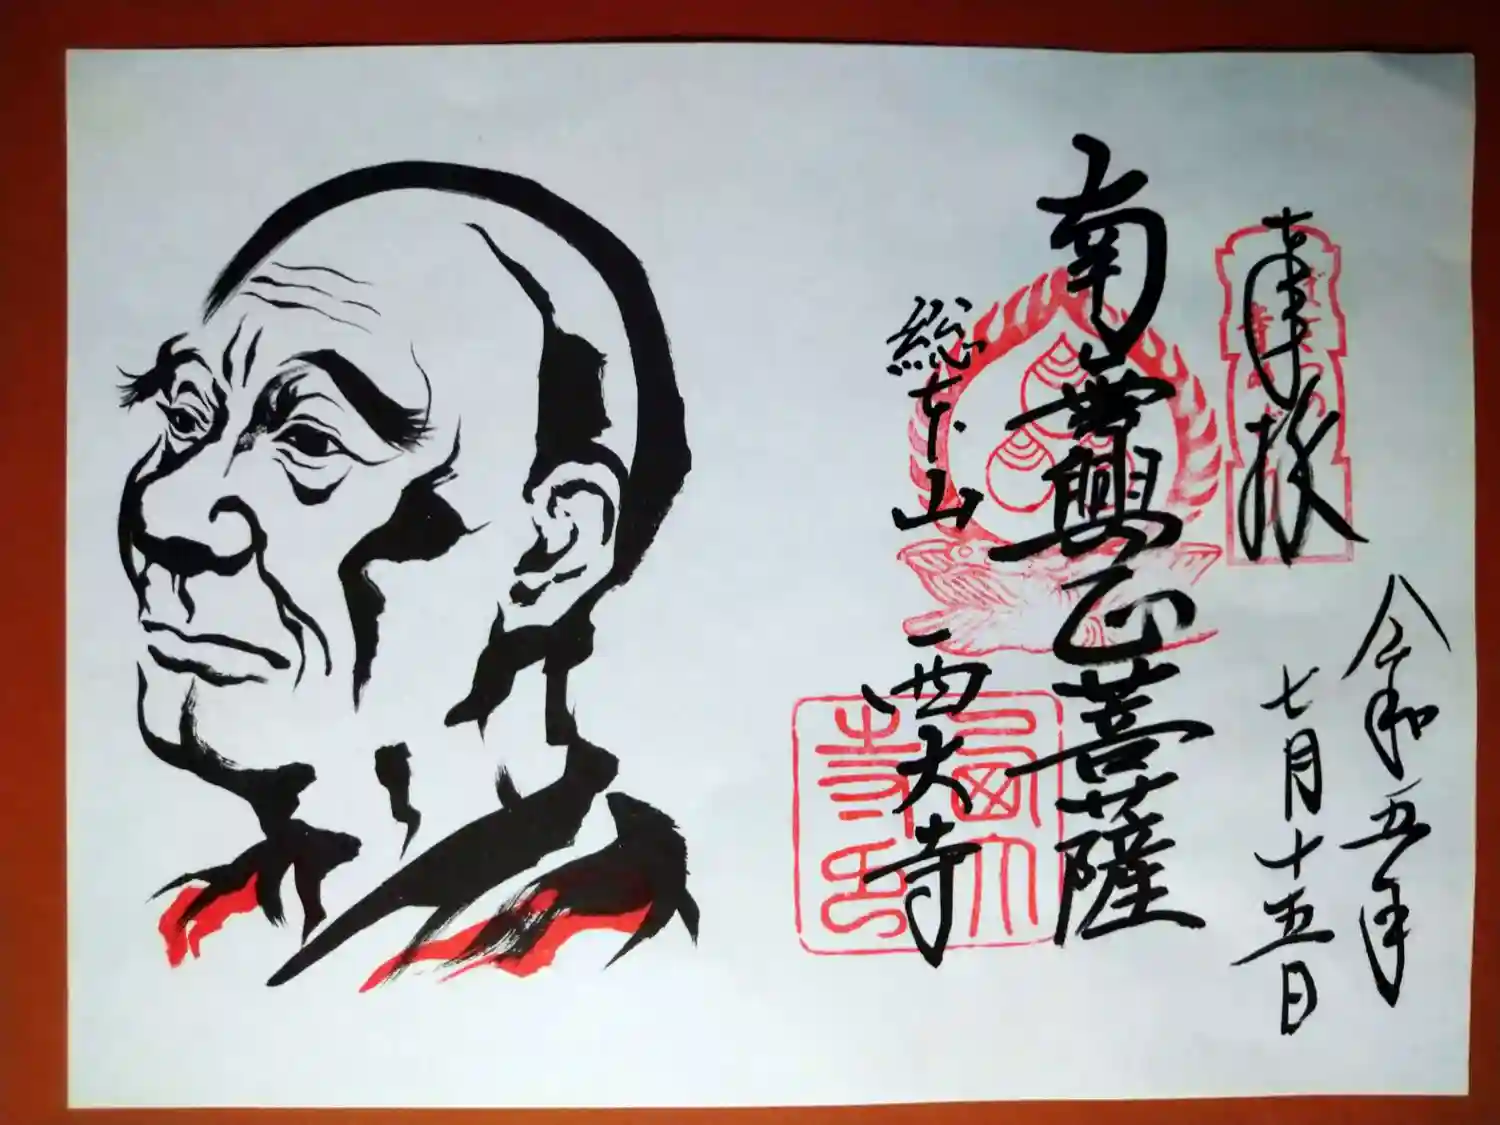 奉拝
令和五年
七月十五日
南無興正菩薩
総本山
西大寺